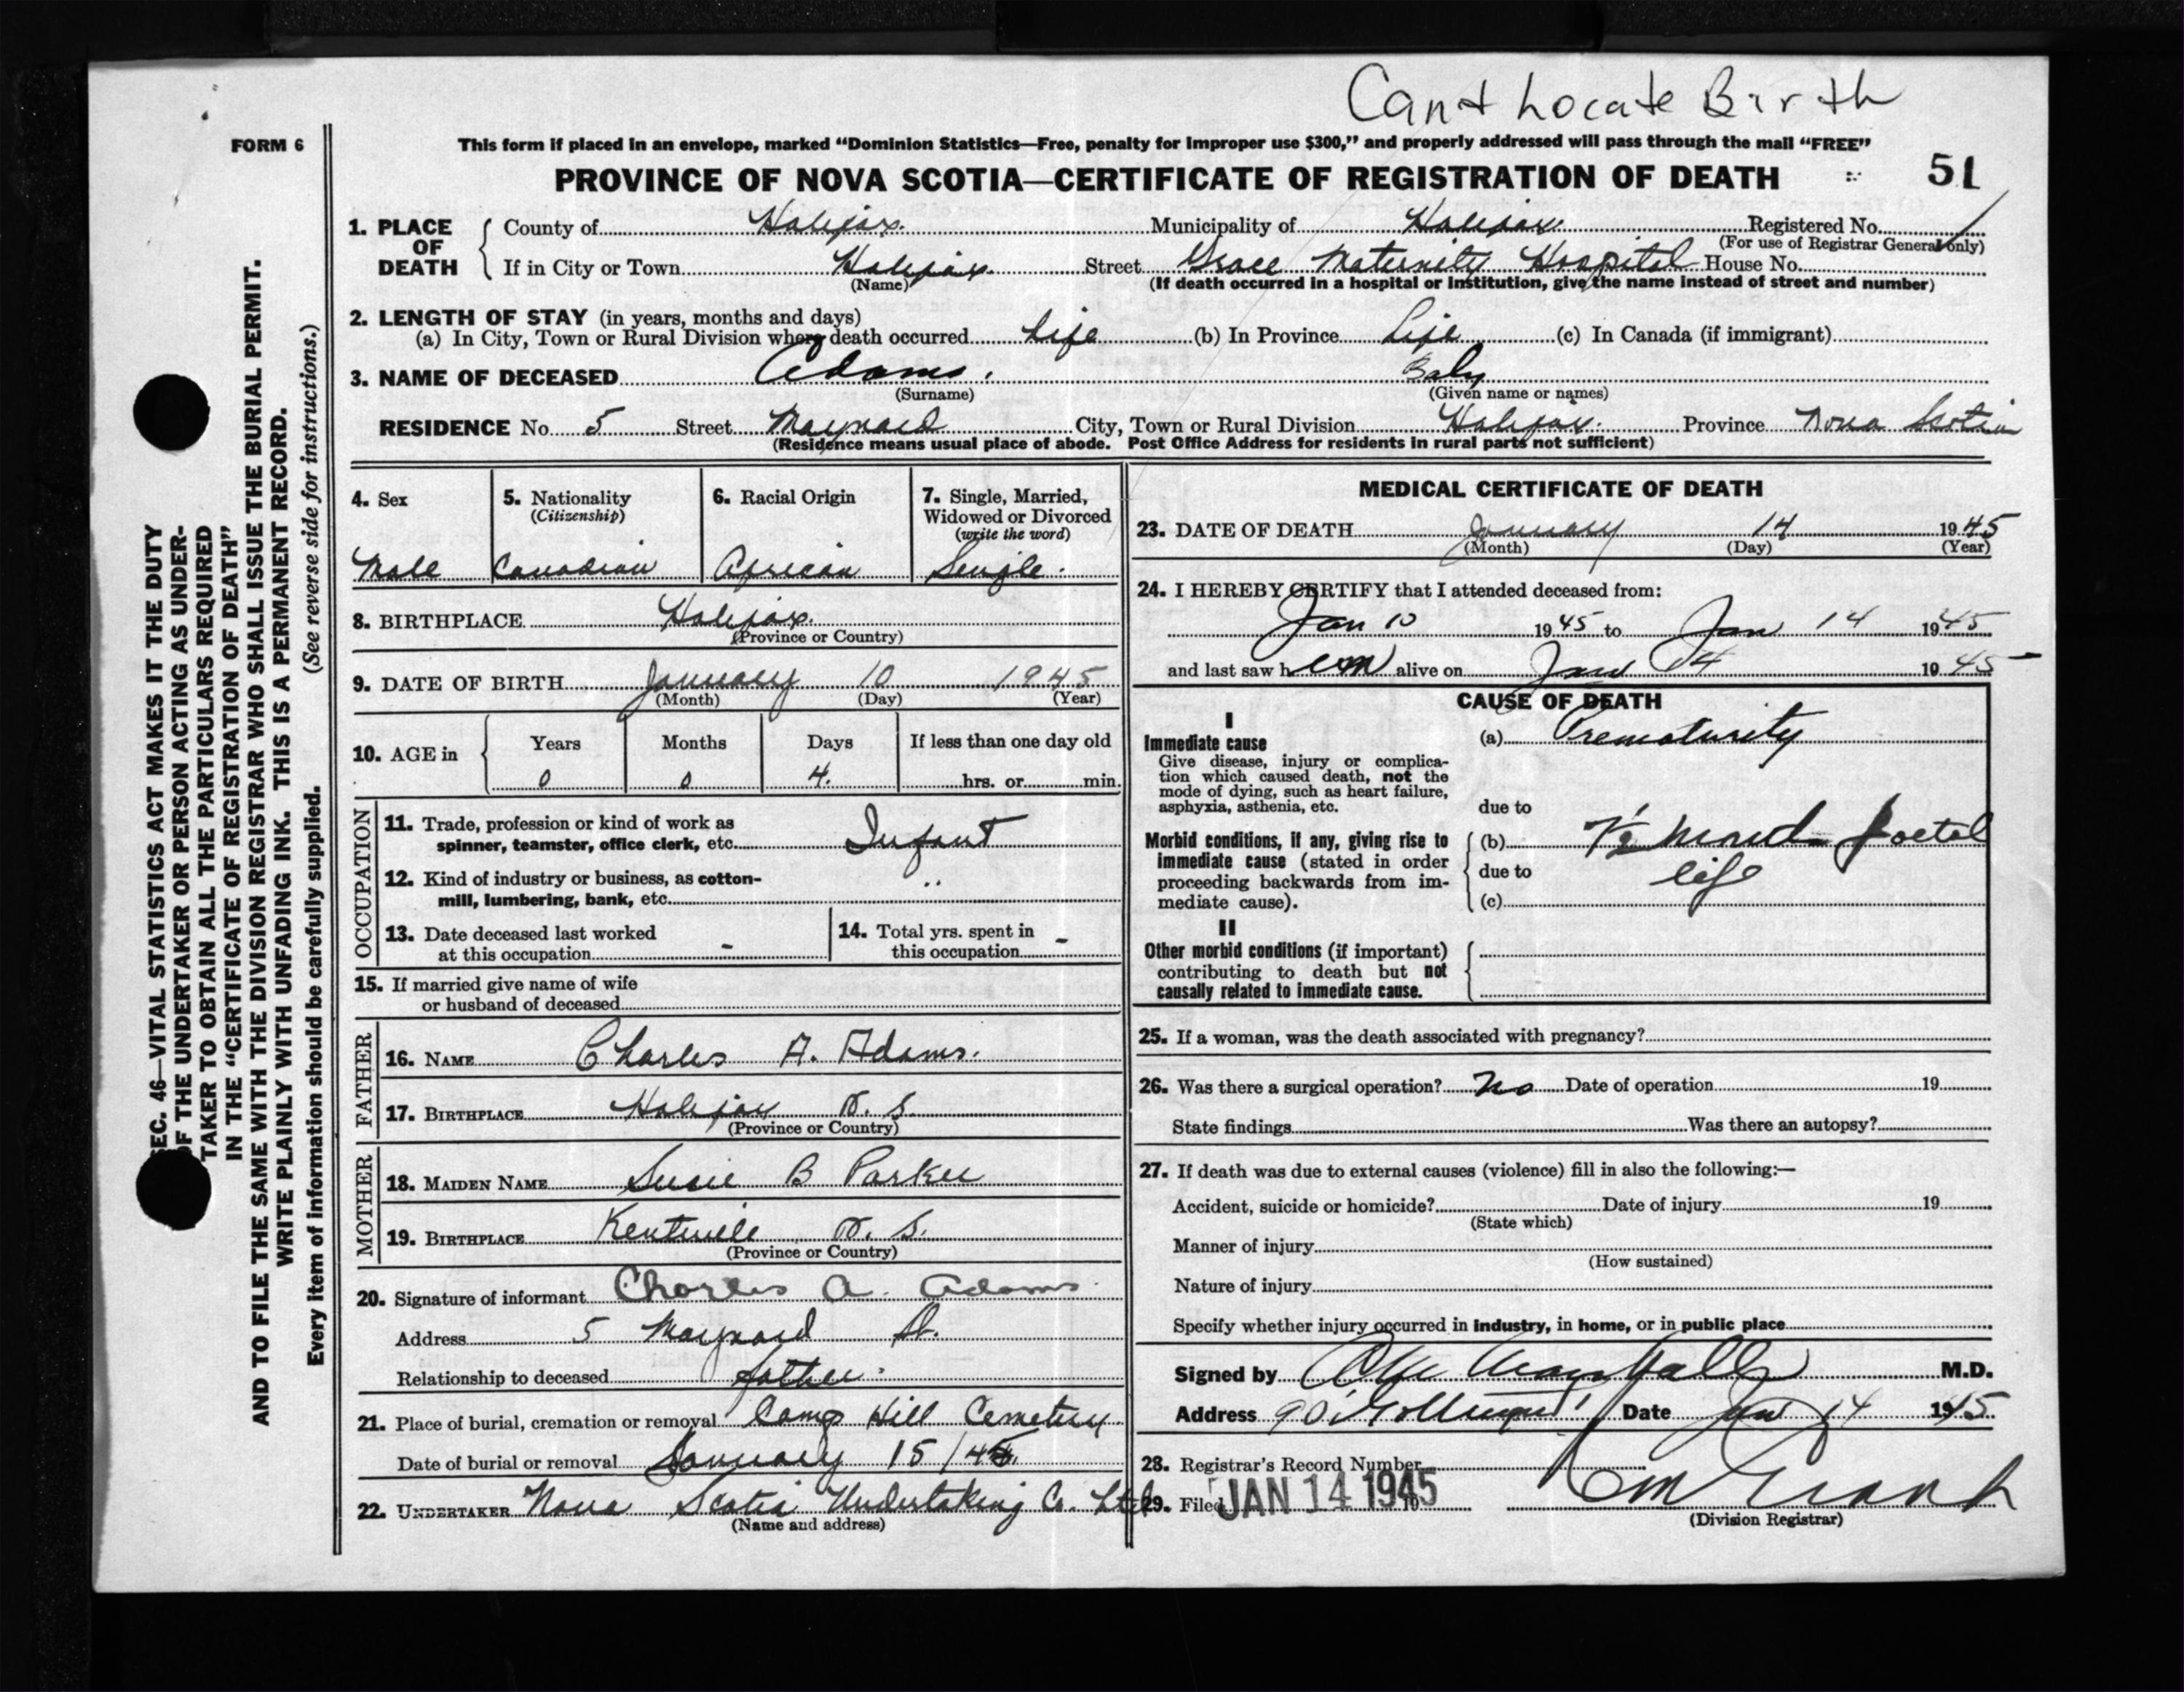 Cant Locate Birth
FORM 6
This form if placed in an envelope, marked "Dominion Statistics—Free, penalty for improper use $300," and properly addressed will pass through the mail "FREE"
PROVINCE OF NOVA SCOTIA—CERTIFICATE OF REGISTRATION OF DEATH 51
1. PLACE OF DEATH County of Halifax. Municipality of Halifax Registered No.
(For use of Registrar General only)
If in City or Town Halifax. Street Grace Maternity Hospital House No.
(Name) (If death occurred in a hospital or institution, give the name instead of street and number)
2. LENGTH OF STAY (in years, months and days)
(a) In City, Town or Rural Division where death occurred Life (b) In Province Life (c) In Canada (if immigrant)
3. NAME OF DECEASED Adams. Baby
(Surname) (Given name or names)
RESIDENCE No. 5 Street Maynard City, Town or Rural Division Halifax. Province Nova Scotia
(Residence means usual place of abode. Post Office Address for residents in rural parts not sufficient)
SEC. 46—VITAL STATISTICS ACT MAKES IT THE DUTY
OF THE UNDERTAKER OR PERSON ACTING AS UNDER-
TAKER TO OBTAIN ALL THE PARTICULARS REQUIRED
IN THE "CERTIFICATE OF REGISTRATION OF DEATH"
AND TO FILE THE SAME WITH THE DIVISION REGISTRAR WHO SHALL ISSUE THE BURIAL PERMIT.
WRITE PLAINLY WITH UNFADING INK. THIS IS A PERMANENT RECORD.
Every item of information should be carefully supplied. (See reverse side for instructions.)
4. Sex Male
5. Nationality (Citizenship) Canadian
6. Racial Origin African
7. Single, Married, Widowed or Divorced (write the word) Single.
8. BIRTHPLACE Halifax.
(Province or Country)
9. DATE OF BIRTH January 10 1945
(Month) (Day) (Year)
10. AGE in Years Months Days If less than one day old
0 0 4. hrs. or min.
OCCUPATION
11. Trade, profession or kind of work as
spinner, teamster, office clerk, etc. Infant
12. Kind of industry or business, as cotton-
mill, lumbering, bank, etc. "
13. Date deceased last worked
at this occupation -
14. Total yrs. spent in
this occupation -
15. If married give name of wife
or husband of deceased
FATHER
16. NAME Charles A. Adams.
17. BIRTHPLACE Halifax N. S.
(Province or Country)
MOTHER
18. MAIDEN NAME Susie B Parker
19. BIRTHPLACE Kentville N. S.
(Province or Country)
20. Signature of informant Charles A. Adams
Address 5 Maynard St.
Relationship to deceased Father.
21. Place of burial, cremation or removal Camp Hill Cemetery
Date of burial or removal January 15/45
22. UNDERTAKER Nova Scotia Undertaking Co. Ltd
(Name and address)
MEDICAL CERTIFICATE OF DEATH
23. DATE OF DEATH January 14 1945
(Month) (Day) (Year)
24. I HEREBY CERTIFY that I attended deceased from:
Jan 10 1945 to Jan 14 1945
and last saw h em alive on Jan 14 1945
CAUSE OF DEATH
I
Immediate cause
Give disease, injury or complica-
tion which caused death, not the
mode of dying, such as heart failure,
asphyxia, asthenia, etc.
(a) Prematurity
due to
Morbid conditions, if any, giving rise to
immediate cause (stated in order
proceeding backwards from im-
mediate cause).
(b) 7½ foetal
due to life
(c)
II
Other morbid conditions (if important)
contributing to death but not
causally related to immediate cause.
25. If a woman, was the death associated with pregnancy?
26. Was there a surgical operation? No Date of operation 19
State findings Was there an autopsy?
27. If death was due to external causes (violence) fill in also the following:—
Accident, suicide or homicide? Date of injury 19
(State which)
Manner of injury
(How sustained)
Nature of injury
Specify whether injury occurred in industry, in home, or in public place
Signed by M.D.
Address Date Jan 14 1945
28. Registrar's Record Number
29. Filed JAN 14 1945 19
(Division Registrar)